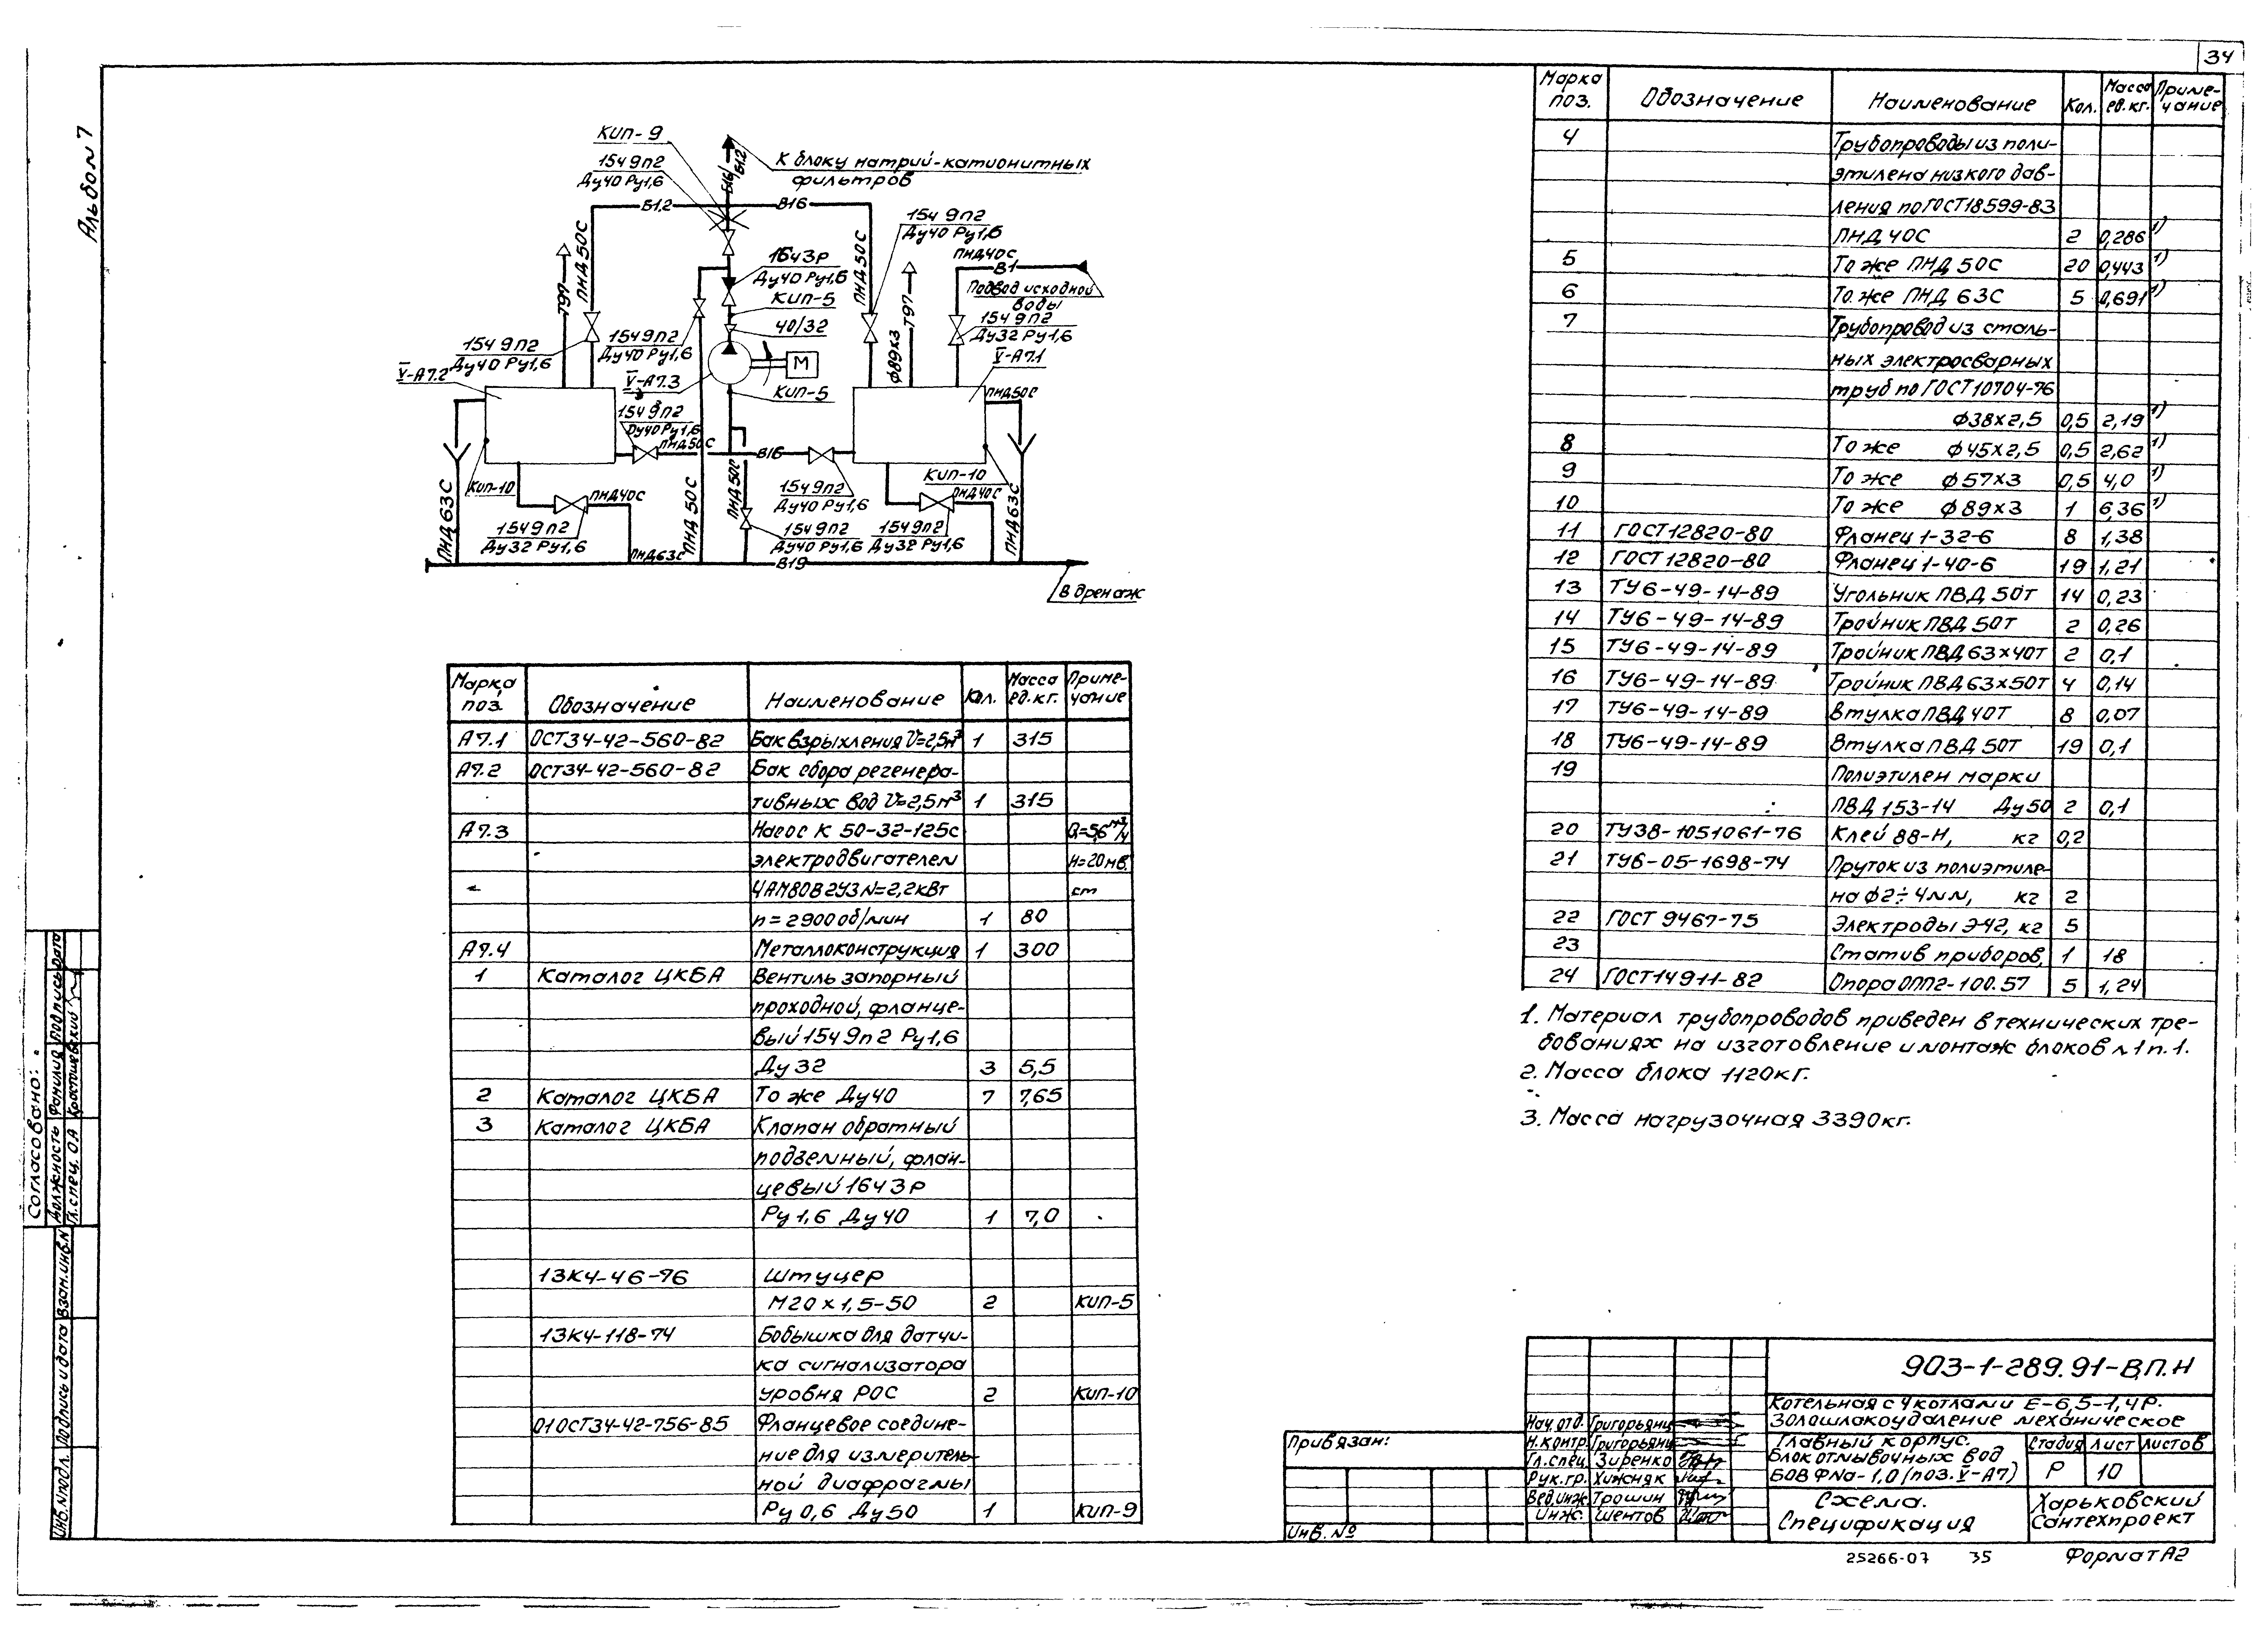 34
Альбом 7
КИП-9
15ч 9п2
Ду40 Ру1,6
В16
В12
К блоку натрий-катионитных
фильтров
В12
В16
15ч 9п2
Ду40 Ру1,6
ПНД40С
В1
Подвод исходной
воды
16ч3р
Ду40 Ру1,6
КИП-5
40/32
Т97
ПНД50С
ПНД50С
Т97
ф89х3
15ч 9п2
Ду32 Ру1,6
V-А7.1
15ч 9п2
Ду40 Ру1,6
V-А7.2
15ч 9п2
Ду40 Ру1,6
V-А7.3
М
КИП-5
ПНД50С
15ч 9п2
Ду40 Ру1,6
ПНД50С
В16
КИП-10
КИП-10
ПНД40С
ПНД40С
15ч 9п2
Ду40 Ру1,6
ПНД63С
ПНД50С
ПНД50С
ПНД63С
15ч 9п2
Ду32 Ру1,6
15ч 9п2
Ду40 Ру1,6
15ч 9п2
Ду32 Ру1,6
ПНД63С
В19
В дренаж
Марка поз. Обозначение Наименование Кол. Масса ед.кг. Примечание
А7.1 ОСТ34-42-560-82 Бак взрыхления V=2,5м³ 1 315
А7.2 ОСТ34-42-560-82 Бак сбора регенера-
тивных вод V=2,5м³ 1 315
А7.3 Насос К 50-32-125с Q=5,6 м³/ч
электродвигателем Н=20мв.
4АМ80В2У3 N=2,2кВт ст
n=2900об/мин 1 80
А7.4 Металлоконструкция 1 300
1 Каталог ЦКБА Вентиль запорный
проходной, фланце-
вый 15ч 9п2 Ру1,6
Ду32 3 5,5
2 Каталог ЦКБА То же Ду40 7 7,65
3 Каталог ЦКБА Клапан обратный
подземный, флан-
цевый 16ч3р
Ру1,6 Ду40 1 7,0
13К4-46-76 Штуцер
М20х1,5-50 2 КИП-5
13К4-118-74 Бобышка для датчи-
ка сигнализатора
уровня РОС 2 КИП-10
01ОСТ34-42-756-85 Фланцевое соедине-
ние для измеритель-
ной диафрагмы
Ру0,6 Ду50 1 КИП-9
Марка поз. Обозначение Наименование Кол. Масса ед.кг. Примечание
4 Трубопроводы из поли-
этилена низкого дав-
ления по ГОСТ18599-83
ПНД40С 2 0,286 1)
5 То же ПНД50С 20 0,443 1)
6 То же ПНД63С 5 0,691 1)
7 Трубопровод из сталь-
ных электросварных
труб по ГОСТ10704-76
ф38х2,5 0,5 2,19 1)
8 То же ф45х2,5 0,5 2,62 1)
9 То же ф57х3 0,5 4,0 1)
10 То же ф89х3 1 6,36 1)
11 ГОСТ12820-80 Фланец 1-32-6 8 1,38
12 ГОСТ12820-80 Фланец 1-40-6 19 1,21
13 ТУ6-49-14-89 Угольник ПВД50Т 14 0,23
14 ТУ6-49-14-89 Тройник ПВД50Т 2 0,26
15 ТУ6-49-14-89 Тройник ПВД63х40Т 2 0,1
16 ТУ6-49-14-89 Тройник ПВД63х50Т 4 0,14
17 ТУ6-49-14-89 Втулка ПВД40Т 8 0,07
18 ТУ6-49-14-89 Втулка ПВД50Т 19 0,1
19 Полиэтилен марки
ПВД153-14 Ду50 2 0,1
20 ТУ38-1051061-76 Клей 88-Н, кг 0,2
21 ТУ6-05-1698-74 Пруток из полиэтиле-
на ф2÷4мм, кг 2
22 ГОСТ 9467-75 Электроды Э-42, кг 5
23 Статив приборов, 1 18
24 ГОСТ14911-82 Опора ОПП2-100.57 5 1,24
1. Материал трубопроводов приведен в технических тре-
бованиях на изготовление и монтаж блоков л1 п.1.
2. Масса блока 1120кг.
3. Масса нагрузочная 3390кг.
Согласовано:
Должность Фамилия Подпись Дата
Гл.спец. ОА
Инв.№подл. Подпись и дата Взам.инв.№
Привязан:
Инв.№
903-1-289.91-ВП.Н
Котельная с 4 котлами Е-6,5-1,4Р.
Золошлакоудаление механическое
Нач.отд. Григорьянц
Н.контр. Григорьянц
Гл.спец. Зиренко
Рук.гр. Хижняк
Вед.инж. Трошин
Инж. Шентов
Главный корпус.
Блок отмывочных вод
БОВ ФNa-1,0 (поз. V-А7)
Стадия Лист Листов
Р 10
Схема.
Спецификация
Харьковский
Сантехпроект
25266-07 35 Формат А2